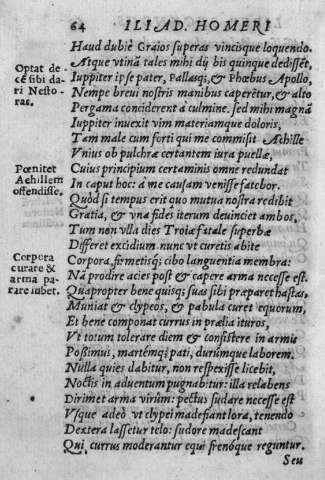 64 ILIAD. HOMERI
Haud dubiè Graios superas vincisque loquendo.
Atque vtinã tales mihi dij bis quinque dedissẽt,
Optat de-
cẽ sibi da-
ri Nesto-
ras.
Iuppiter ipse pater, Pallasq;, & Phœbus Apollo,
Nempe brevi nostris manibus caperẽtur, & alto
Pergama conciderẽt à culmine. sed mihi magnã
Iuppiter inuexit vim materiamque doloris,
Tam male cum forti qui me commisit Achille
Vnius ob pulchræ certantem iura puellæ,
Pœnitet
Achillem
offendisse.
Cuius principium certaminis omne redundat
In caput hoc: à me causam venisse fatebor.
Quòd si tempus erit quo mutua nostra redibit
Gratia, & vna fides iterum deuinciet ambos,
Tum non vlla dies Troiæ fatale superbæ
Differet excidium. nunc vt curetis abite
Corpora
curare &
arma pa-
rare iubet.
Corpora, firmetisq; cibo languentia membra:
Nã prodire acies post & capere arma necesse est.
Quapropter bene quisq; suas sibi præparet hastas,
Muniat & clypeos, & pabula curet equorum,
Et bene componat currus in prælia ituros,
Vt totum tolerare diem & consistere in armis
Possimus, martẽmq; pati, durúmque laborem.
Nulla quies dabitur, non respexisse licebit,
Noctis in aduentum pugnabitur: illa relabens
Dirimet arma virûm: pectus sudare necesse est
Vsque adeò vt clypei madefiant lora, tenendo
Dextera lassetur telo: sudore madescant
Qui, currus moderantur equi frenóque reguntur.
Seu